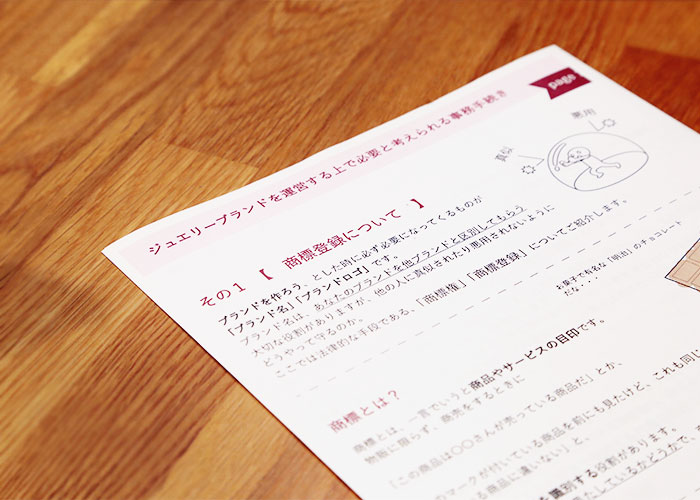 page
ジュエリーブランドを運営する上で必要と考えられる事務手続き
真似
悪用
その1 【 商標登録について 】
ブランドを作ろう、とした時に必ず必要になってくるものが
「ブランド名」「ブランドロゴ」です。
ブランド名は、あなたのブランドを他ブランドと区別してもらう
大切な役割がありますが、他の人に真似されたり悪用されないように
どうやって守るのか。
ここでは法律的な手段である、「商標権」「商標登録」についてご紹介します。
お菓子で有名な【明治】のチョコレート
だな・・・
商標とは？
商標とは、一言でいうと商品やサービスの目印です。
物販に限らず、商売をするときに
「この商品は〇〇さんが売っている商品だ」とか、
のマークが付いている商品を前にも見たけど、これも同じ
商品に違いない」と、
識別する役割があります。
しているかどうかで、